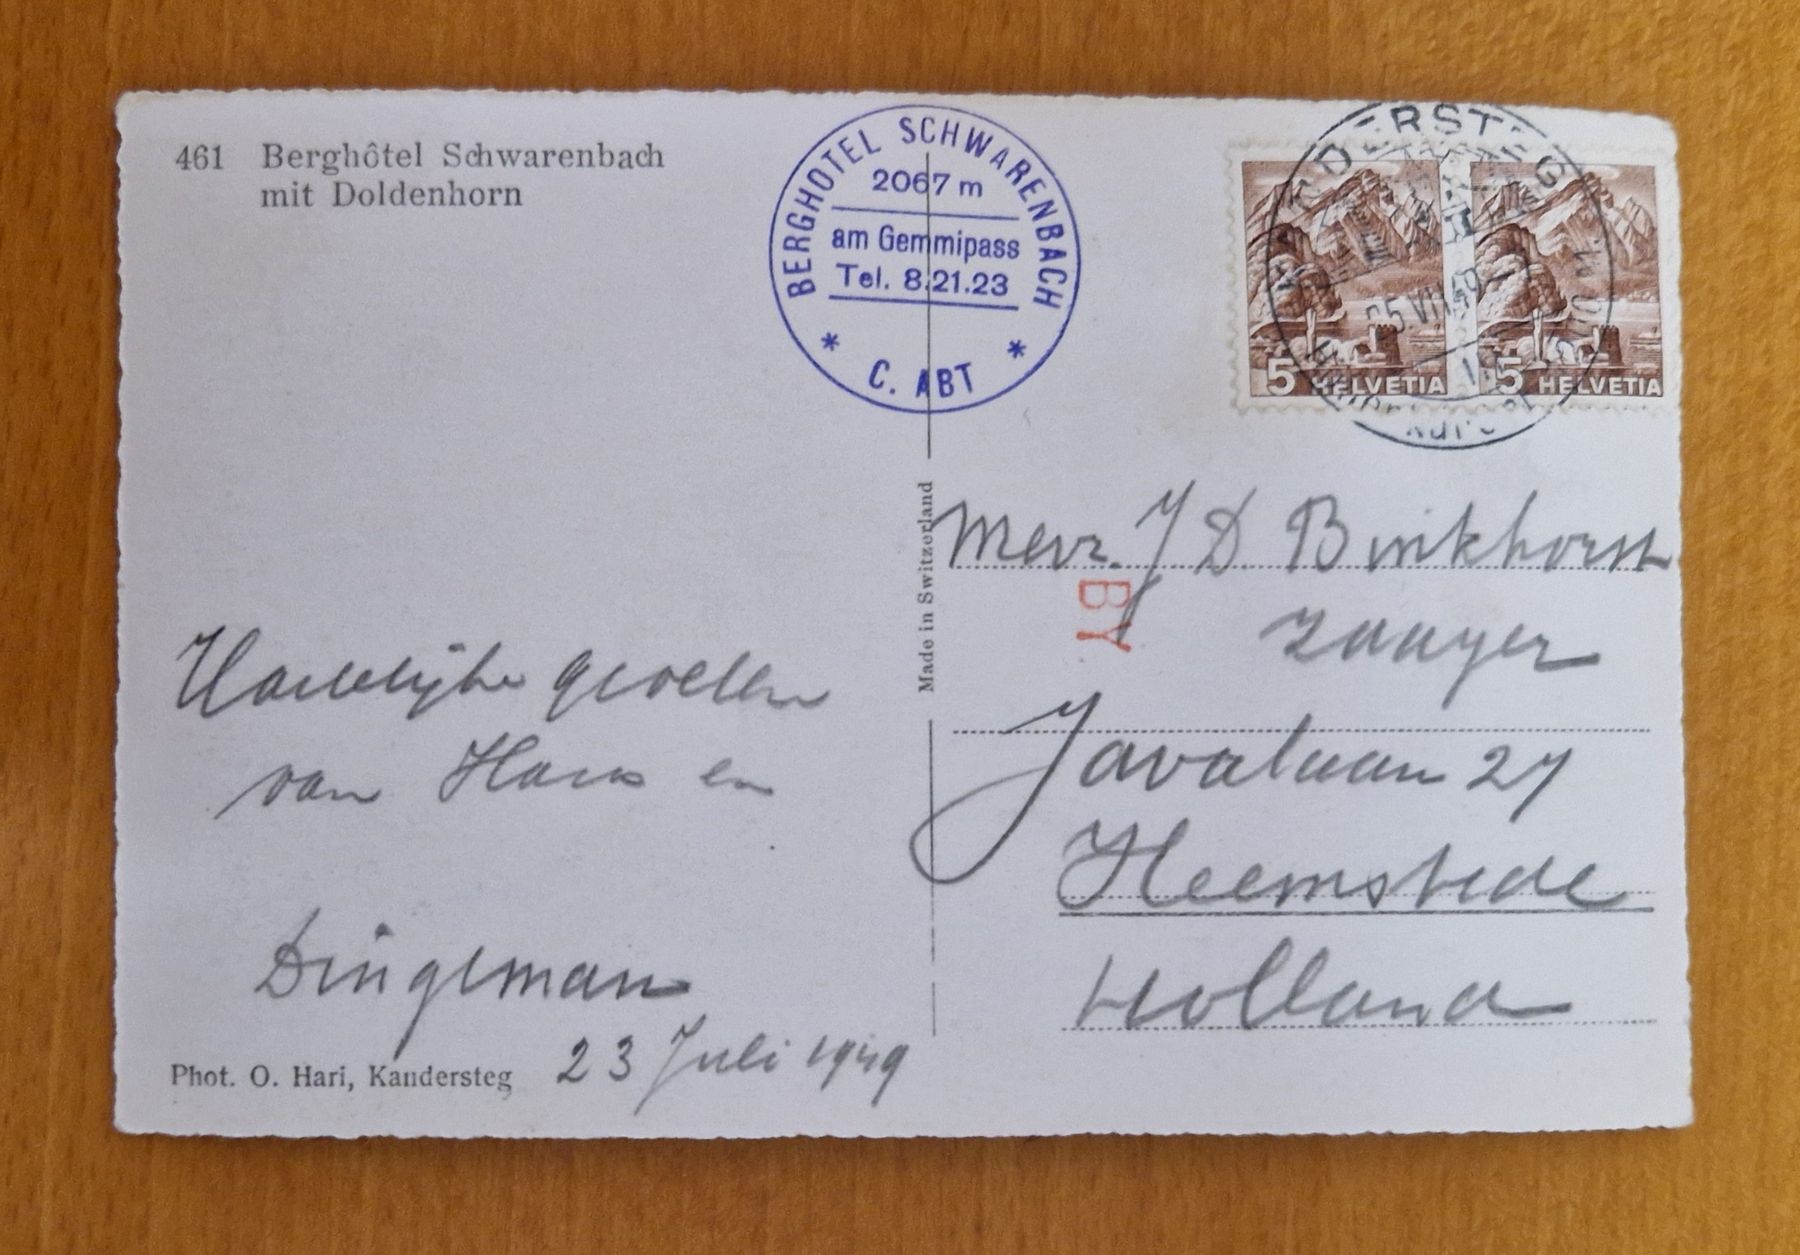 461 Berghôtel Schwarenbach
mit Doldenhorn
BERGHOTEL SCHWARENBACH
2067 m
am Gemmipass
Tel. 8.21.23
* C. ABT *
KANDERSTEG
5 HELVETIA
5 HELVETIA
Made in Switzerland
Mevr. J D Binkhorst
Zaayer
BY
Javalaan 27
Heemstede
Holland
Hartelijke groeten
van Hans en
Dingeman
23 Juli 1949
Phot. O. Hari, Kandersteg